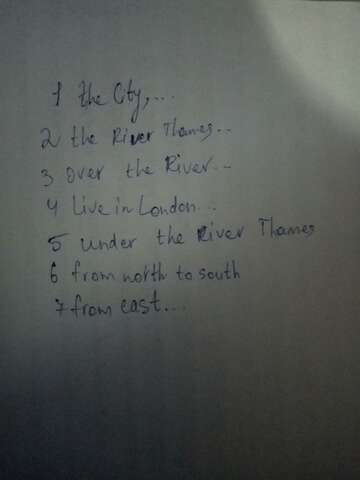 1 the City,...
2 the River Thames..
3 over the River...
4 Live in London...
5 under the River Thames
6 from north to south
7 from east...